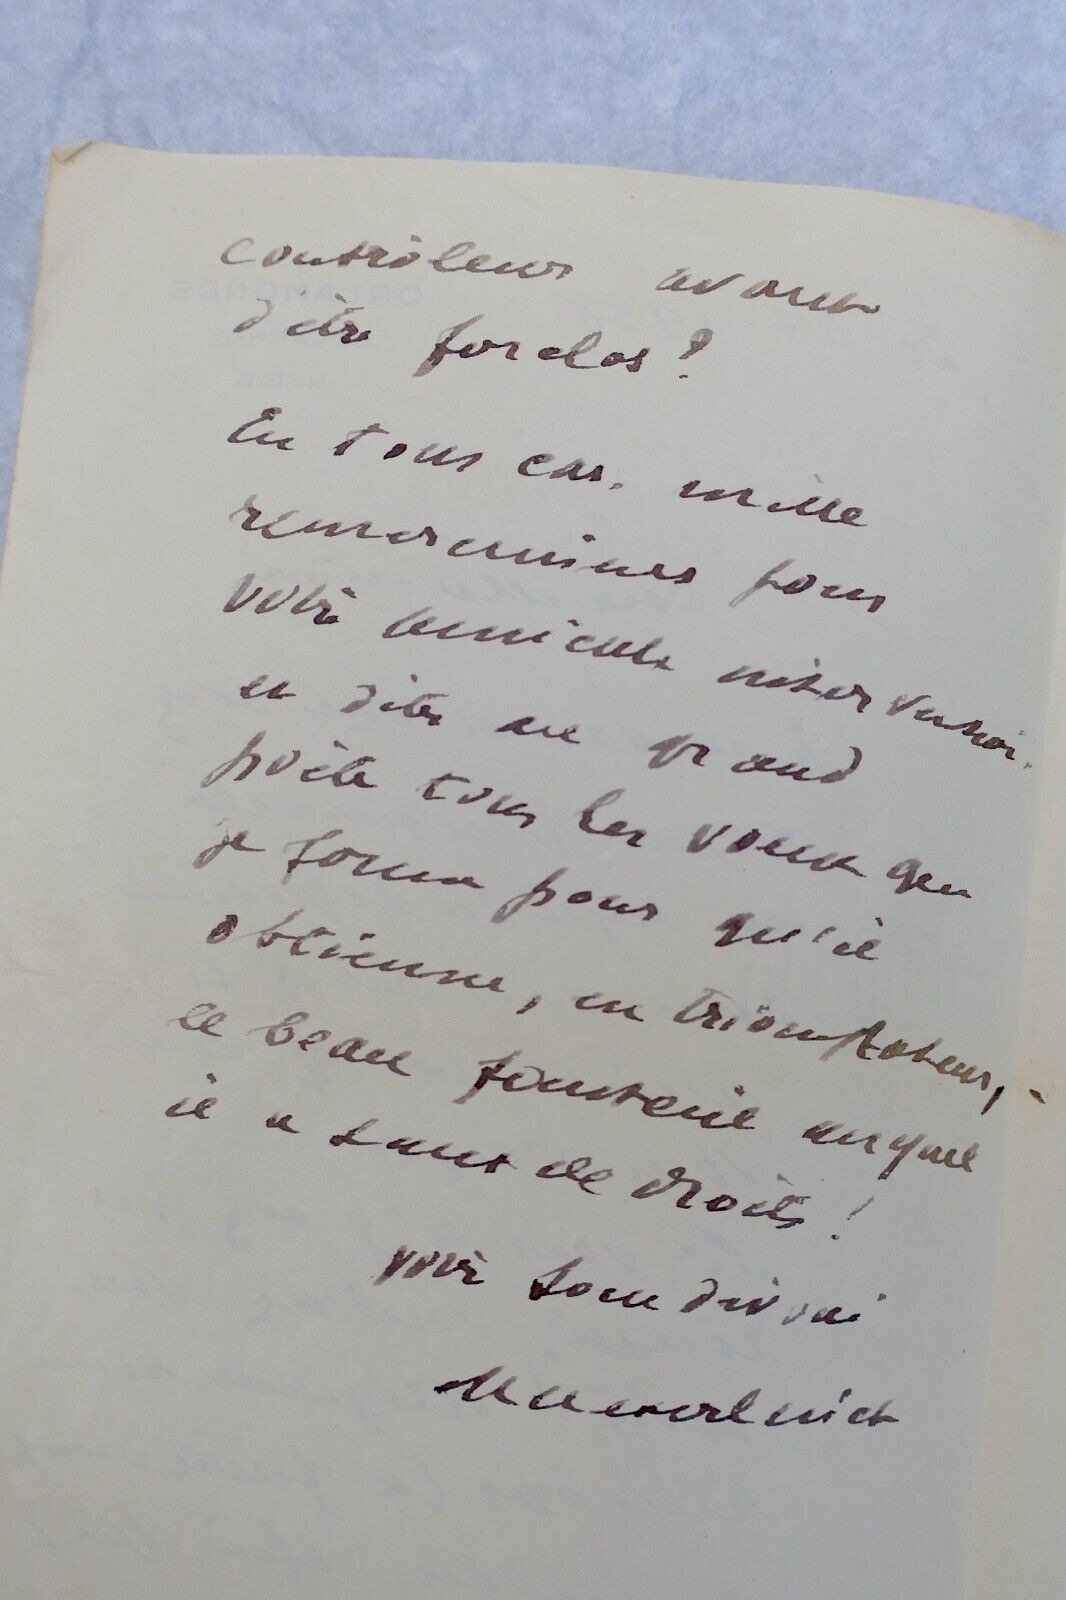 contrôleur avant
d'être forclos?
En tous cas, mille
remerciements pour
votre amicale intervention.
et dites au grand
poète tous les voeux que
je forme pour qu'il
obtienne, en triomphateur, -
le beau fauteuil auquel
il a tant de droits!
votre tout dévoué
Maeterlinck
ORLAMONDE